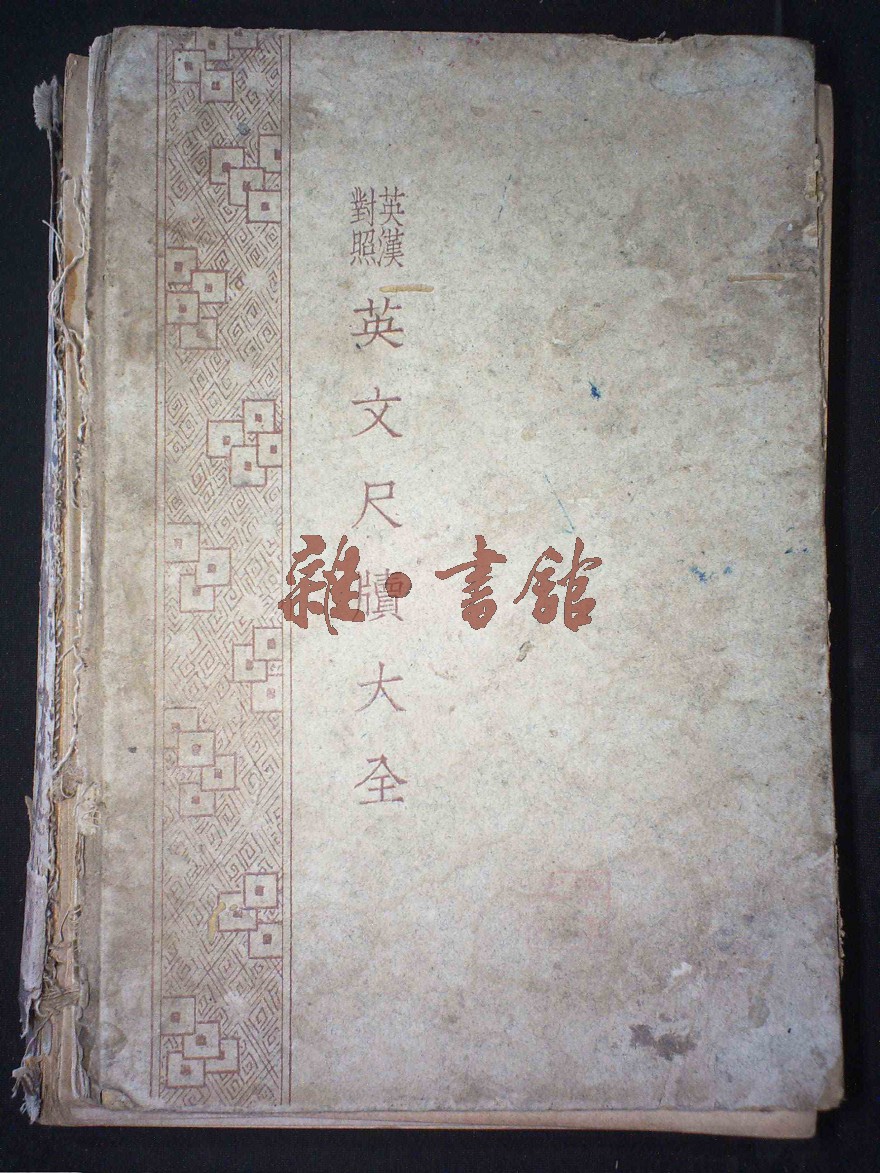 英漢
對照
英文尺牘大全
雜·書館